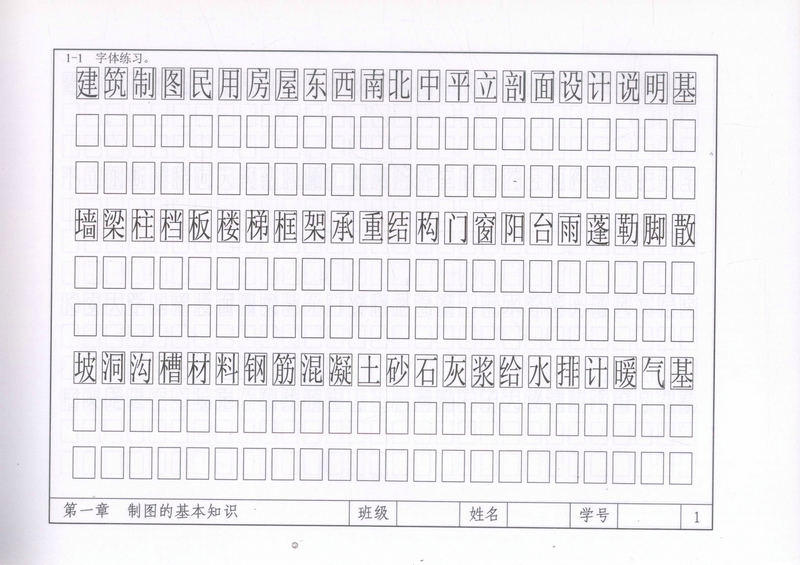 1-1 字体练习。
建筑制图民用房屋东西南北中平立剖面设计说明基
墙梁柱档板楼梯框架承重结构门窗阳台雨蓬勒脚散
坡洞沟槽材料钢筋混凝土砂石灰浆给水排计暖气基
第一章 制图的基本知识 班级 姓名 学号 1